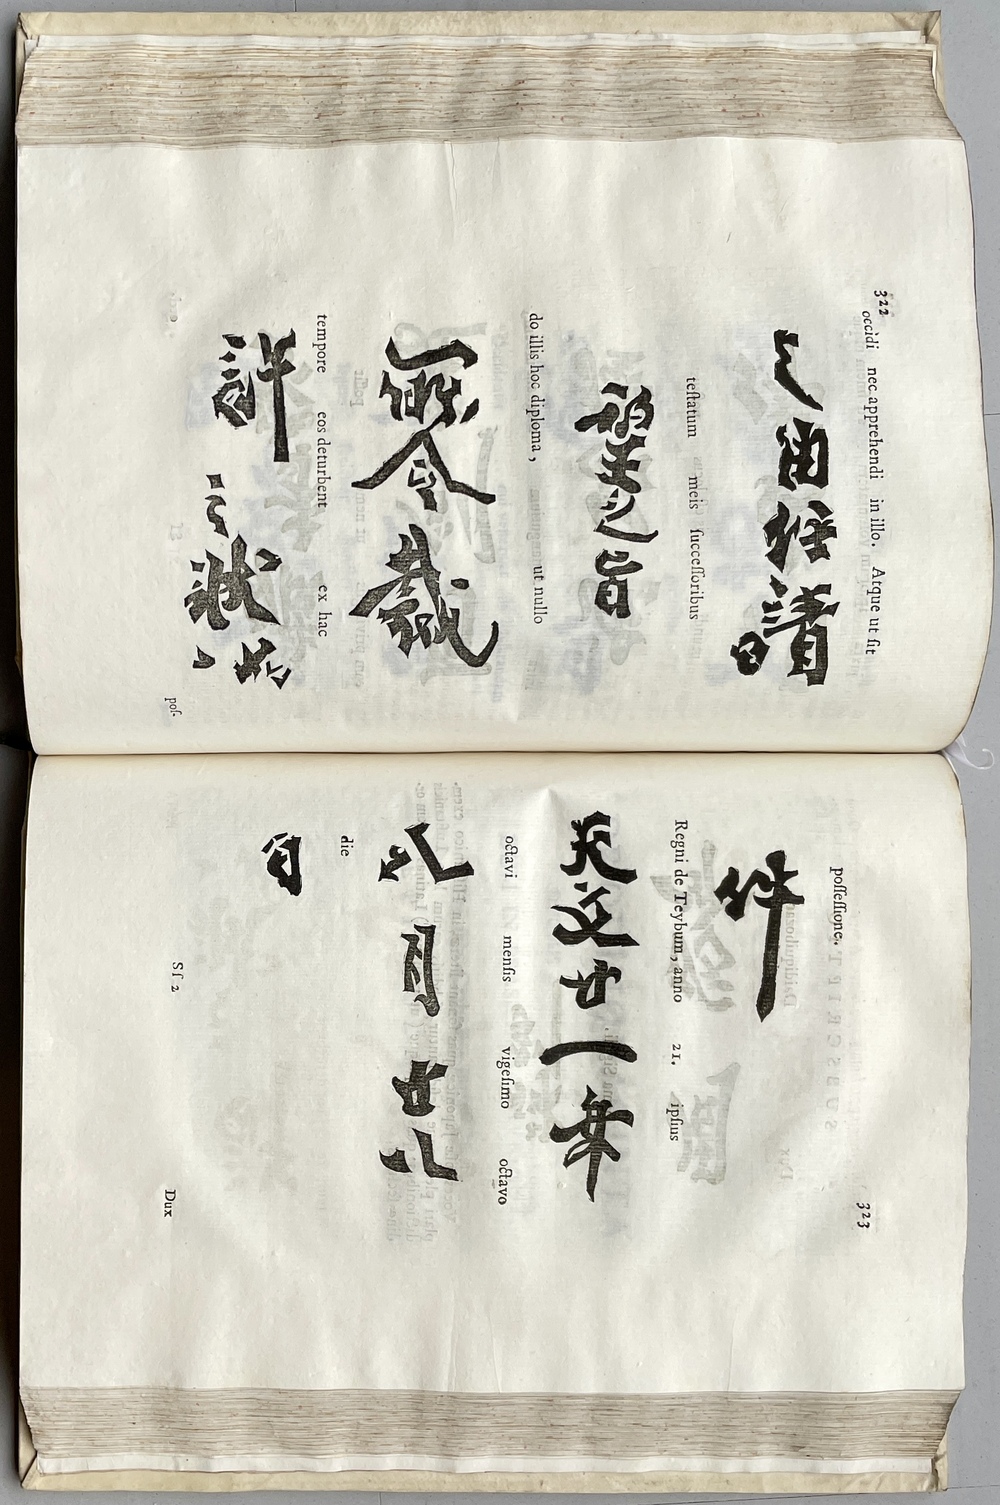 322
occidi nec apprehendi in illo. Atque ut ſit
之由任請
teſtatum meis ſucceſſoribus
望之旨
do illis hoc diploma, ut nullo
所令裁
tempore eos deturbent ex hac
許之状如
poſ-
323
poſſeſſione.
件
Regni de Teybum, anno 21. ipſius
天文廿一年
octavi menſis vigeſimo octavo
八月廿八
die
日
Sſ 2
Dux